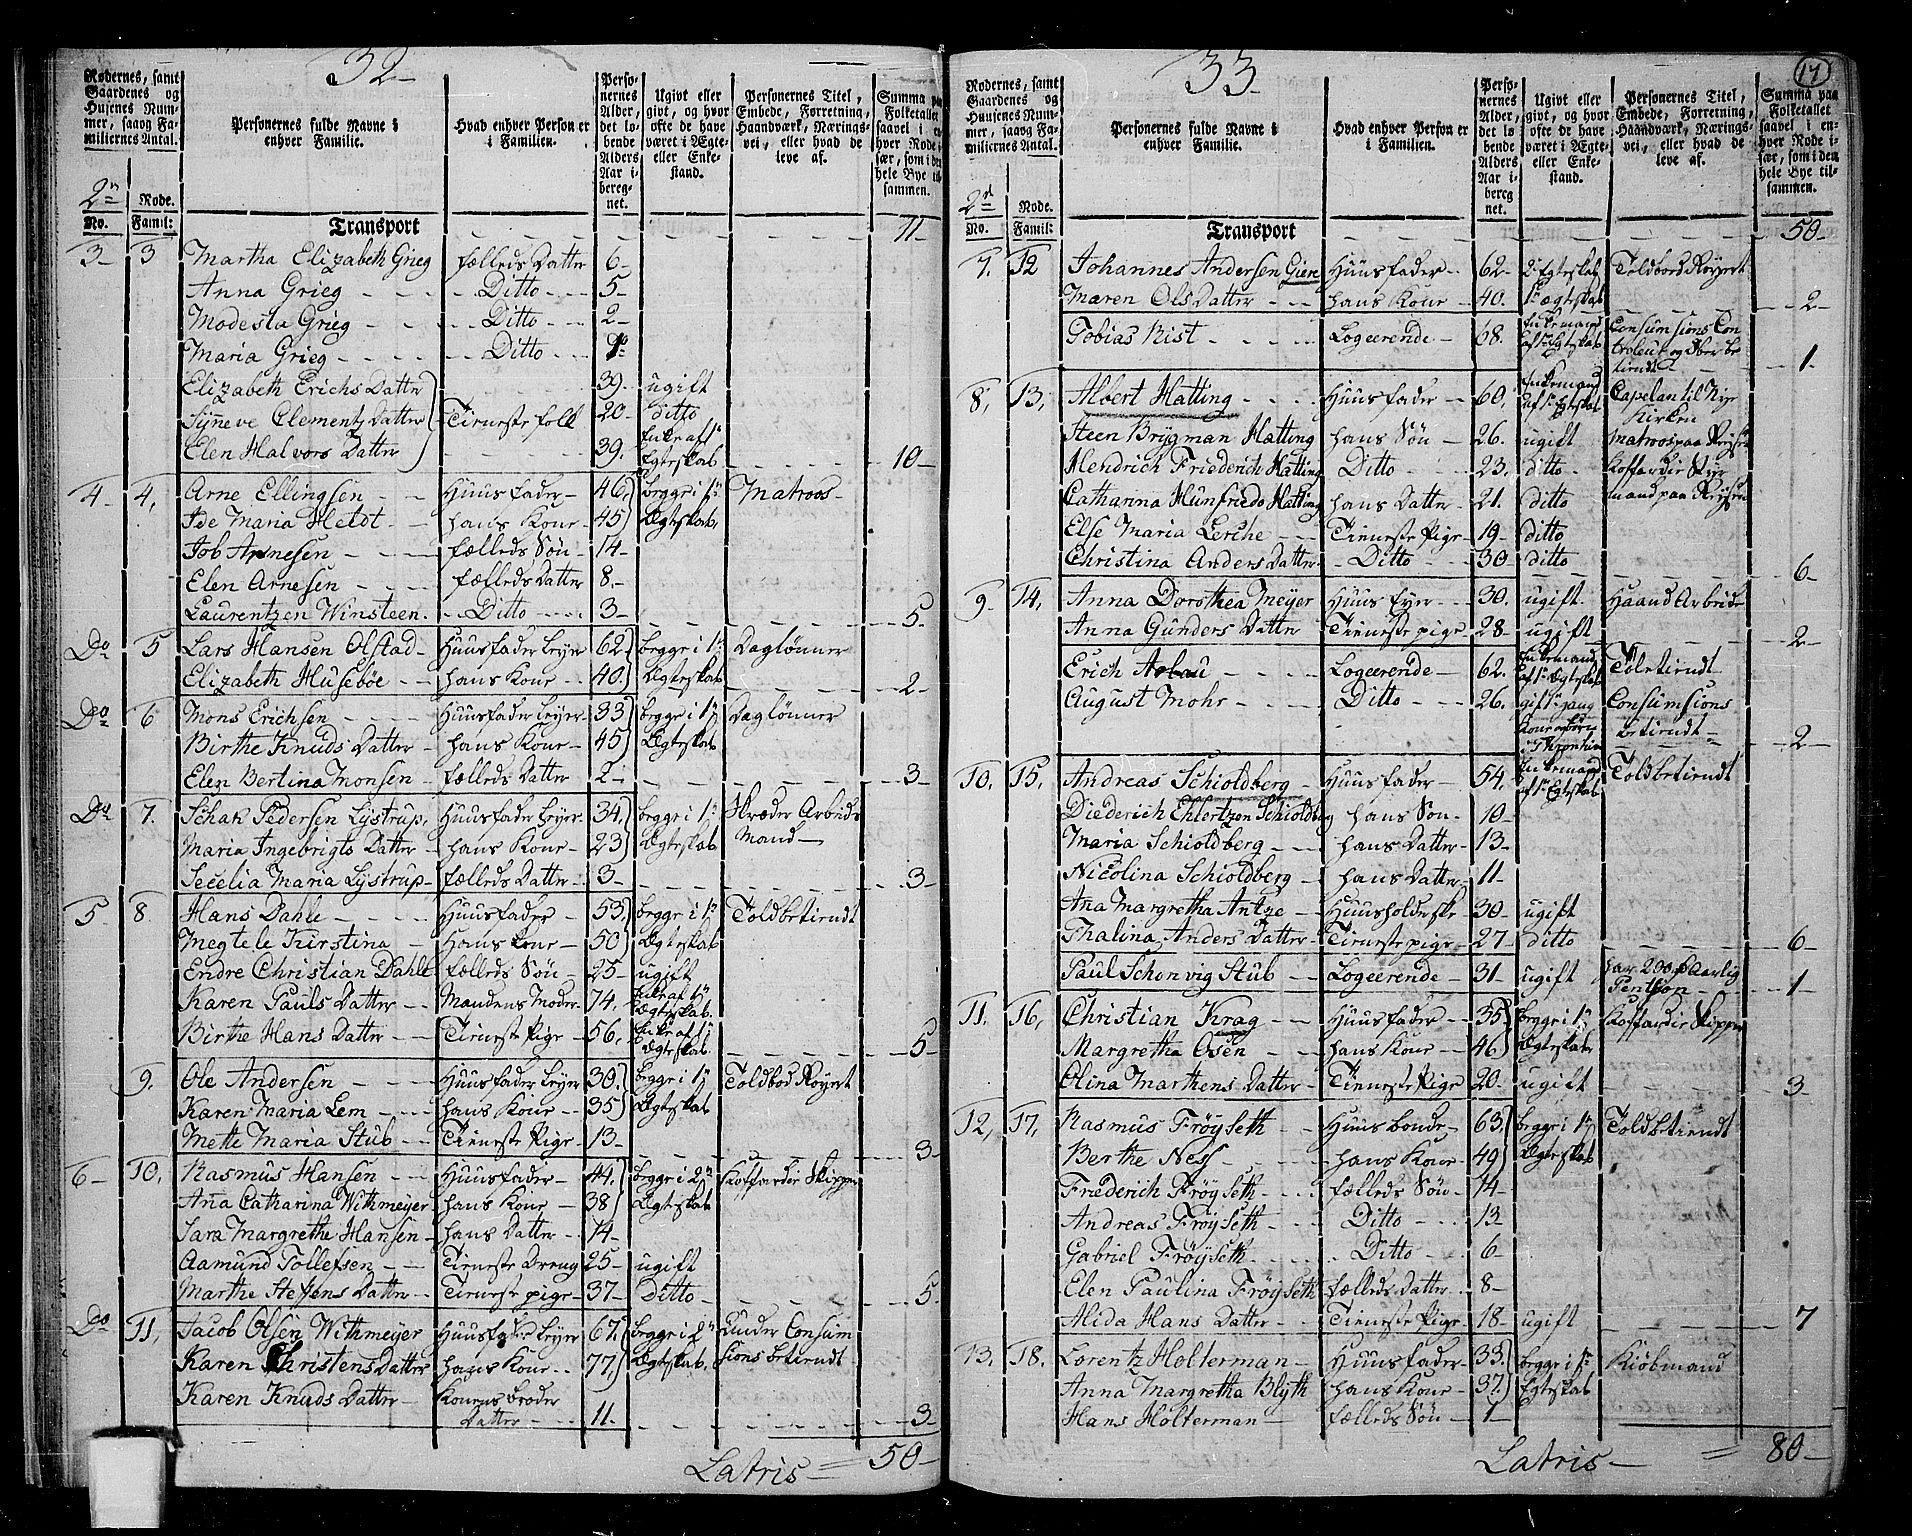 32
Rodernes, samt
Gaardenes og
Husenes Num-
mer, saavg Fa-
miliernes Antal.
2n
Rode.
No. Famil:
Personernes fulde Navne i
enhver Familie.
Hvad enhver Person er
i Familien.
Perso-
nernes
Alder,
det lø-
bende
Alders
Aar i-
bereg-
net.
Ugivt eller
givt, og hvor
ofte de have
været i Ægte-
eller Enke-
stand.
Personernes Titel,
Embede, Forretning,
Haandværk, Nærings-
vei, eller hvad de
leve af.
Summa paa
Folketallet
saavel i en-
hver Rode i-
sær, som i den
hele Bye til-
sammen.
Transport 11
3 3 Martha Elizabeth Grieg fælleds Datter 6
Anna Grieg Ditto 5
Modesta Grieg Ditto 2
Maria Grieg Ditto
Elizabeth Erichs Datter 39. ugift
Synneve Clementz Datter Tieneste folk 20 ditto
Elen Halvors Datter 39. Enke af 1t Egteskab 10
4 4, Arne Ellingsen Huusfader 46, begge i 1t Matros
Ide Maria Heldt hans Kone 45 Ægteskab,
Job Arnesen fælleds Søn 14
Elen Arnesen fælleds Datter 8.
Laurentzen Winsteen Ditto 3 5.
Do 5 Lars Hansen Olstad Huusfader Leyer 62 begge i 1t Daglønner
Elizabeth Husebøe hans Kone 40 Ægteskab 2
Do 6 Mons Erichsen Huusfader Leyer 33 begge i 1t Daglønner
Birthe Knuds Datter hans Kone 45 Ægteskab
Elen Bertina Monsen fælleds Datter 2 3
Do 7. Schak Pedersen Lystrup, Huusfader Leyer 34, begge i 1t Skræder Arbeids
Maria Ingebrigts Datter hans Kone 23 Ægteskab Mand
Secelia Maria Lystrup fælleds Datter 3 3
5 8. Hans Dahle Huusfader 53. begge i 1t Toldbetiendt
Megtele Kirstina Hans Kone 50 Ægteskab
Endre Christian Dahle fælleds Søn 25 ugift
Karen Pauls Datter Mandens Moder 74, Enke af 1t Ægteskab.
Birthe Hans Datter Tieneste Pige 56, Enke af 1t Ægteskab. 5
9. Ole Andersen Huusfader Leyer 30 begge i 1t Toldbod Røyert
Karen Maria Lem hans Kone 35 Ægteskab
Mette Maria Stub Tieneste Pige 13 3
6 10, Rasmus Hansen Huusfader 44, begge i 2t Koffardie Skipper
Ana Catharina Withmeyer hans Kone 38 Ægteskab
Sara Margrethe Hansen hans Datter 14
Aamund Tollefsen Tieneste Dreng 25 ugift
Marthe Steffens Datter Tieneste pige 37 Ditto 5.
Do 11, Jacob Olsen Withmeyer Huusfader Leyer 67, begge i 2t Under Consum
Karen Christens Datter hans Kone 77, Ægteskab. sions betiendt
Karen Knuds Datter Konens broder
Datter 11. 3
Latris 50
33
17
Rodernes, samt
Gaardenes og
Huusenes Num-
mer, saavg Fa-
miliernes Antal.
2d
Rode.
No. Famil:
Personernes fulde Navne i
enhver Familie.
Hvad enhver Person er
i Familien.
Perso-
nernes
Alder,
det lø-
bende
Alders
Aar i-
bereg
net.
Ugivt eller
givt, og hvor
ofte de have
været i Ægte-
eller Enke-
stand.
Personernes Titel,
Embede, Forretning,
Haandværk, Nærings-
vei, eller hvad de
leve af.
Summa paa
Folketallet
saavel i en-
hver Rode i-
sær, som i den
hele Bye til-
sammen.
Transport 50
7. 12 Johannes Andersen Gien Huusfader 62 2t Egteskab Toldbods Røyert
Maren Ols Datter hans Kone 40. 1t Ægteskab 2
Tobias Rist Logeerende 68. Enkemand af 1t Egteskab Consumsions Con
troleur og Over be
tiendt 1
8, 13, Albert Hatting Huusfader 60, Enkemand af 1t Egteskab Capelan til Nye
Kirken
Steen Brygman Hatting hans Søn 26. ugift matros paa Reysen
Hendrich Friederich Hatting Ditto 23. ditto Koffardie Styr
Catharina Hunfriede Hatting hans Datter 21. ditto mand paa Reysen
Else Maria Lerche Tieneste Pige 19 ditto
Christina Anders Datter Ditto 30 ditto 6
9. 14, Anna Dorothea Meyer Huus Eyer 30. ugift. Haand Arbeide
Anna Gunders Datter Tieneste pige 28 ugift 2
Erich Aabau Logeerende 62. Enkemand af 1t Ægteskab Toldbetiendt
August Mohr Ditto 26. gift 1t gang Consumsions
betiendt 2
10, 15, Andreas Schioldberg Huusfader 54, Enkemand af 1t Egteskab Toldbetiendt
Diederich Ehlertzen Schioldberg hans Søn 10
Maria Schioldberg hans Datter 13
Nicolina Schioldberg hans Datter 11
Ana Margretha Antze Huusholderske 30 ugift
Thalina Anders Datter Tieneste pige 27 ditto 6
Paul Schonvig Stub Logeerende 31 ugift har 200 Aarlig
Pention 1
11, 16, Christian Krag Huusfader 35 begge i 1t Koffardie Skipper
Margretha Osen hans Kone 46 Ægteskab
Olina Marthens Datter Tieneste Pige 20 ugift 3
12, 17, Rasmus Frøyseth Huusbonde 63, begge i 1t Toldbetiendt
Berthe Ness hans Kone 49 Ægteskab
Friederich Frøyseth fælleds Søn 14
Andreas Frøyseth Ditto 13
Gabriel Frøyseth Ditto 6
Elen Paulina Frøyseth fælleds Datter 8
Alida Hans Datter Tieneste Pige 18 ugift 7
13, 18. Lorentz Holterman Huusfader 33. begge i 1t Kiøbmand
Anna Margretha Blyth hans Kone 37 Egteskab
Hans Holterman fælleds Søn 1
Latris 80